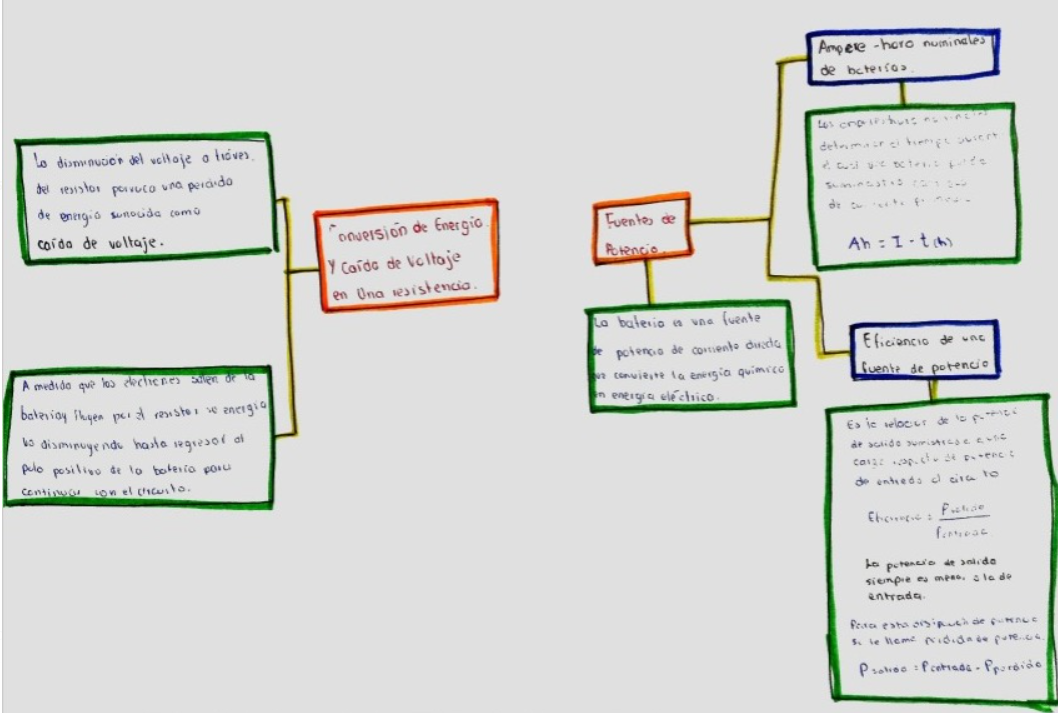 La disminución del voltaje a tráves.
del resistor porvoca una perdida
de energía conocida como
caída de voltaje.
A medida que los electrones salen de la
batería y fluyen por el resistor su energía
va disminuyendo hasta regresar al
polo positivo de la batería para
continuar con el circuito.
Conversión de Energía.
Y Caída de Voltaje
en Una resistencia.
Fuentes de
Potencia.
La batería es una fuente
de potencia de corriente directa
que convierte la energía química
en energía eléctrica.
Ampere - hora nominales
de baterías.
Los nominales
determinar el tiempo
el cual una batería puede
suministrar
de corriente
Ah = I · t (h)
Eficiencia de una
fuente de potencia
Es la relacion de la potencia
de salida suministrada a una
carga respecto de potencia
de entrada al circuito
Eficiencia = Psalida
Pentrada
La potencia de salida
siempre es menor a la de
entrada.
Para esta disipación de potencia
se le llama pérdida de potencia.
Psalida = Pentrada - Pperdida